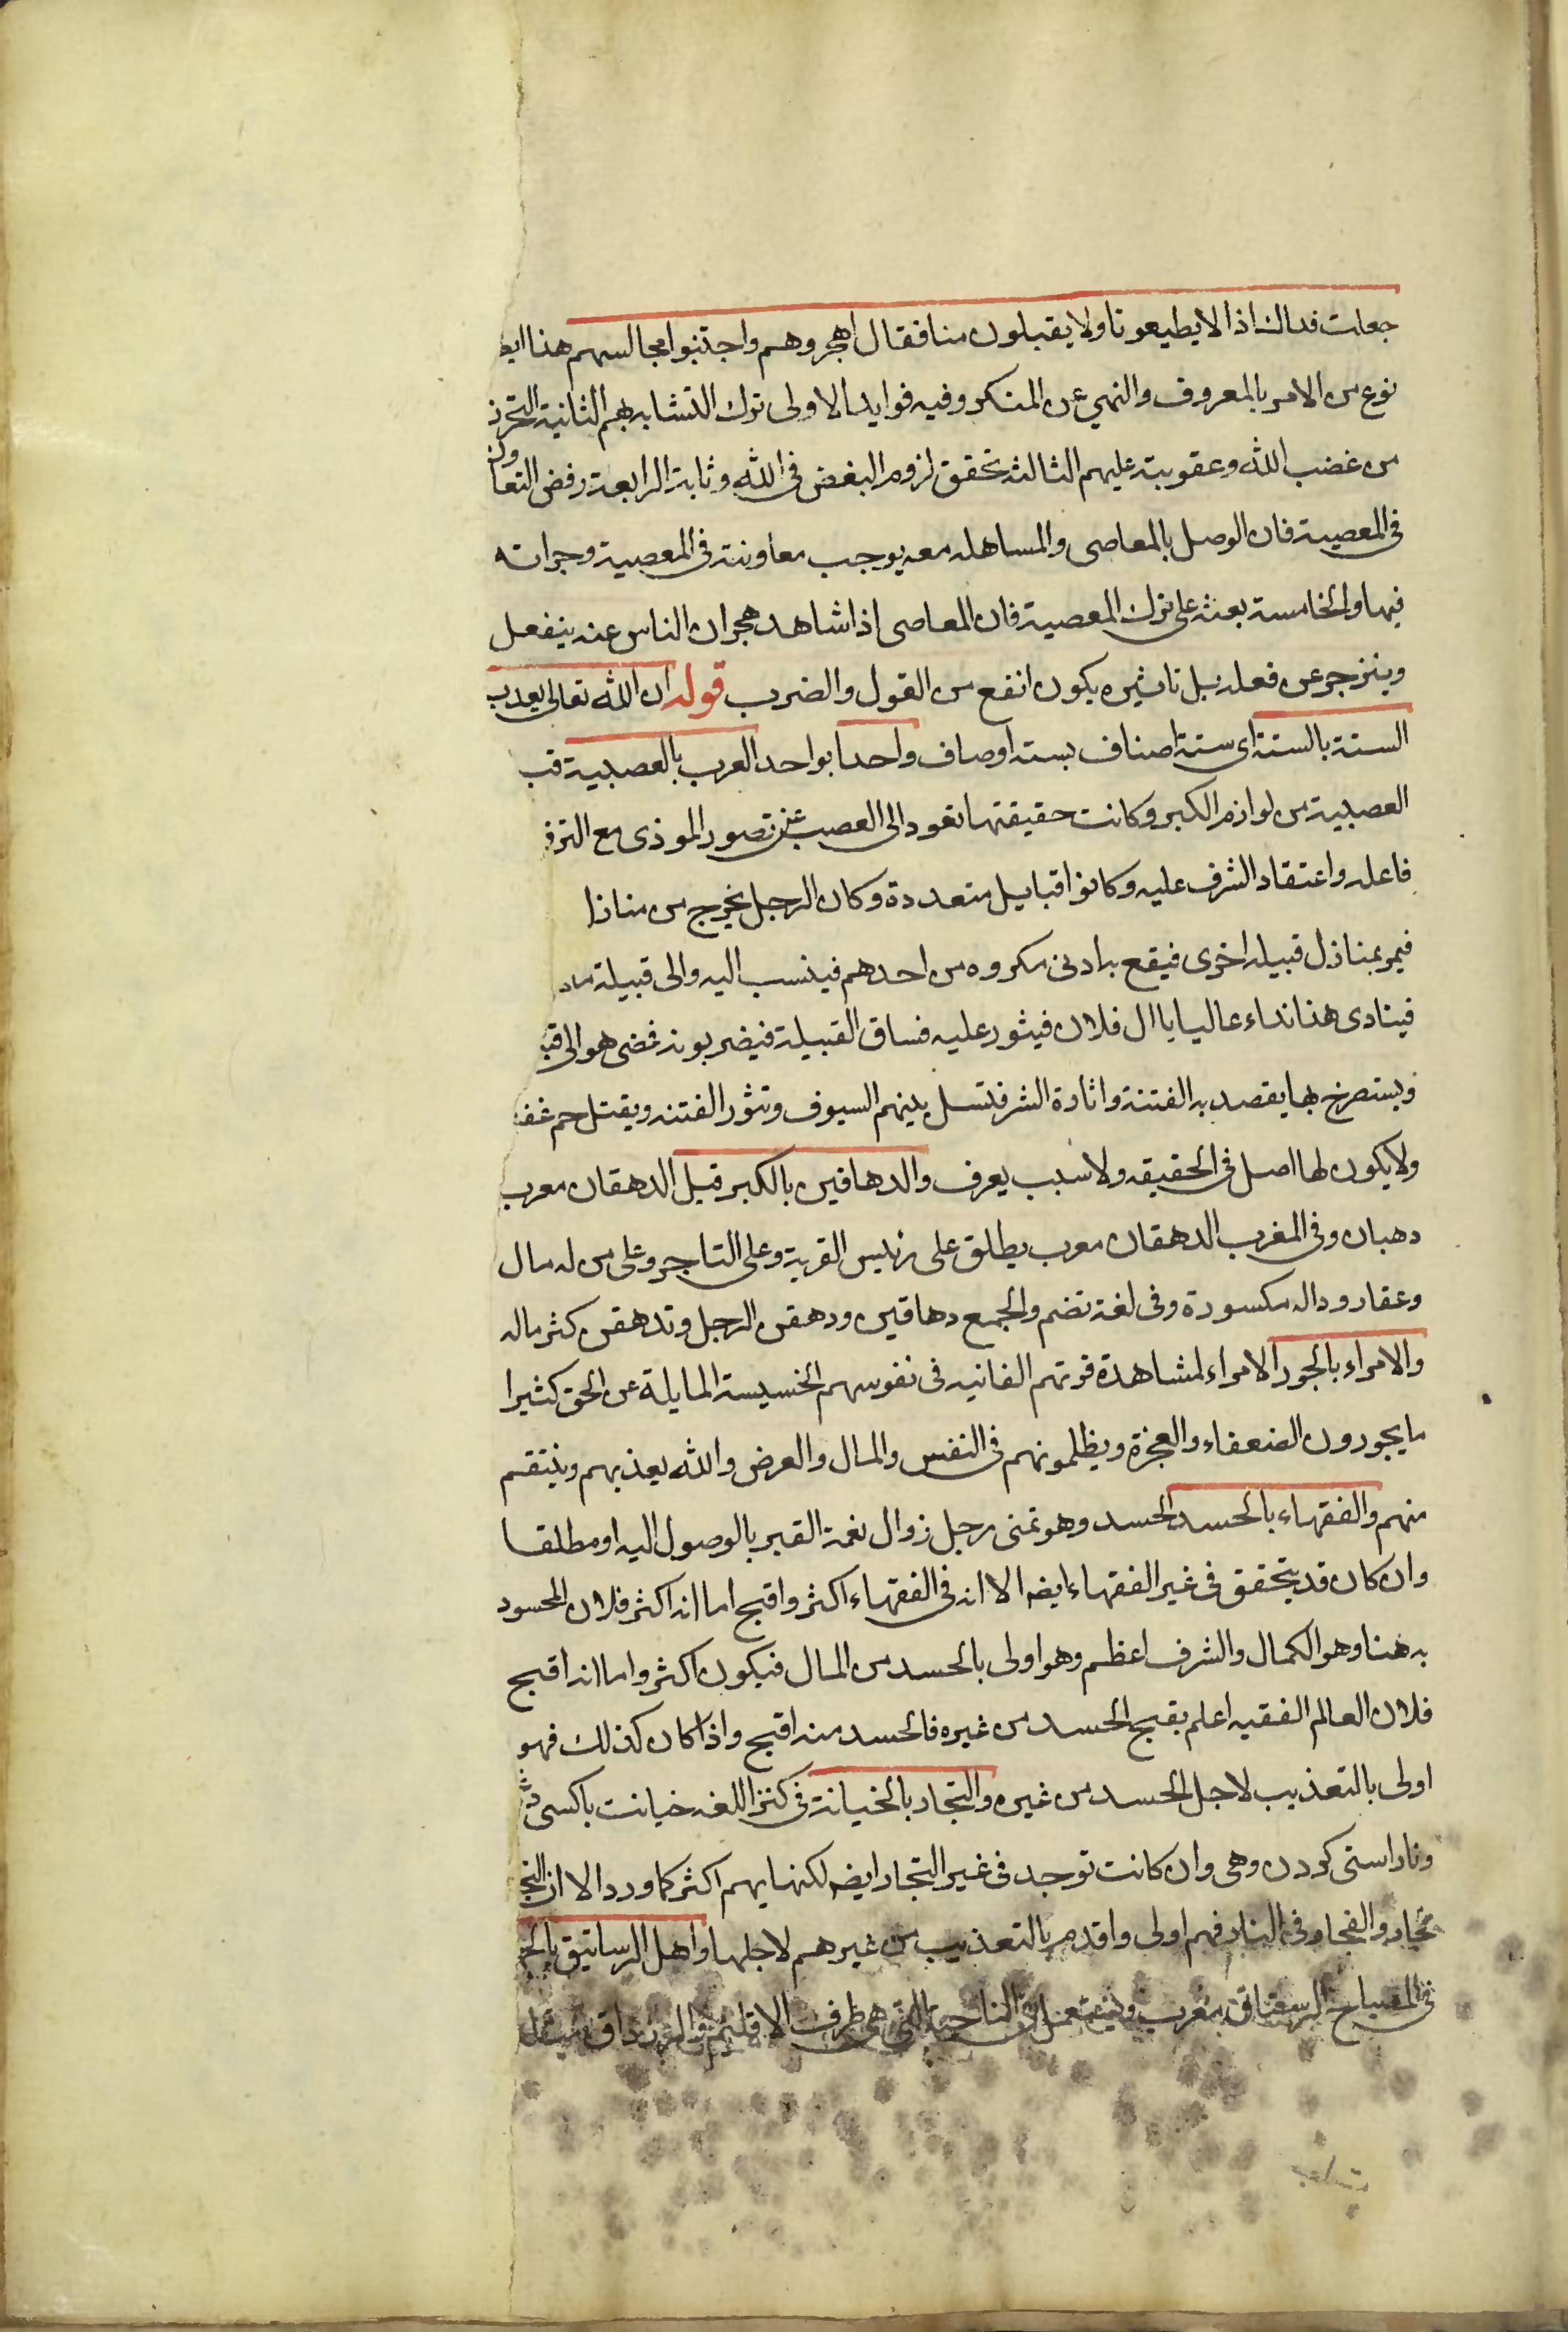 جعلت فداك اذا لا يطيعونا ولا يقبلون منا فقال اهجروهم واجتنبوا مجالسهم هذا ايض
نوع من الامر بالمعروف والنهي عن المنكر وفيه فوايد الاولى ترك التشابه بهم الثانية التحرز
من غضب الله وعقوبته عليهم الثالثة تحقق لزوم البغض في الله وثابة الرابعة رفض التعاون
في المعصية فان الوصل بالمعاصى والمساهله معه يوجب معاونته في المعصية وجراته
فيها والخامسة بعثه على ترك المعصية فان المعاصى اذا شاهد هجران الناس عنه ينفعل
وينزجر عن فعله بل تاثيره يكون انفع من القول والضرب قوله ان الله تعالى يعذب
الستة بالستة اى ستة اصناف بسته اوصاف واحدا بواحد العرب بالعصبية
العصبية من لوازم الكبر وكانت حقيقتها تعود الى الغضب عن تصور الموذى مع الترفع
فاعله واعتقاد الشرف عليه وكانوا قبايل متعددة وكان الرجل يخرج من منازل
فيمر بمنازل قبيله اخرى فيقع به ادنى مكروه من احدهم فينسب اليه والى قبيلة
فينادى هذا نداء عاليا يا ال فلان فيثور عليه فساق القبيلة فيضربونه فمضى هو الى
ويستصرخ بها يقصد به الفتنة واثارة الشر فتسل بينهم السيوف وتثور الفتنه ويقتل جم غف
ولا يكون لها اصل في الحقيقه ولا سبب يعرف والدهاقين بالكبر قيل الدهقان معرب
دهبان وفى المغرب الدهقان معرب يطلق على رئيس القرية وعلى التاجر وعلى من له مال
وعقار وداله مكسورة وفى لغة تضم والجمع دهاقين ودهقن الرجل وتدهقن كثر ماله
والامراء بالجور الامراء لمشاهدة قوتهم الفانيه في نفوسهم الخسيسة المايلة عن الحق كثيرا
ما يجورون الضعفاء والعجزة ويظلمونهم في النفس والمال والعرض والله يعذبهم وينتقم
منهم والفقهاء بالحسد الحسد وهو تمنى رجل زوال نعمة الغير بالوصول اليه او مطلقا
وان كان قد يتحقق في غير الفقهاء ايضا الا انه في الفقهاء اكثر واقبح اما انه اكثر فلان المحسود
به هنا وهو الكمال والشرف اعظم وهو اولى بالحسد من المال فيكون اكثر واما انه اقبح
فلان العالم الفقيه اعلم بقبح الحسد من غيره فالحسد منه اقبح واذا كان كذلك فهو
اولى بالتعذيب لاجل الحسد من غيره والتجار بالخيانة في كنز اللغه خيانت باكسى
وناراستى كردن وهى وان كانت توجد في غير التجار ايضا لكنها بهم اكثر كما ورد الا ان التج
فجار والفجار في النار فهم اولى واقدم بالتعذيب من غيرهم لاجلها واهل الرساتيق بالجه
في المصباح الرستاق معرب ويستعمل في الناحية التي هي طرف الاقليم والرزداق مثل